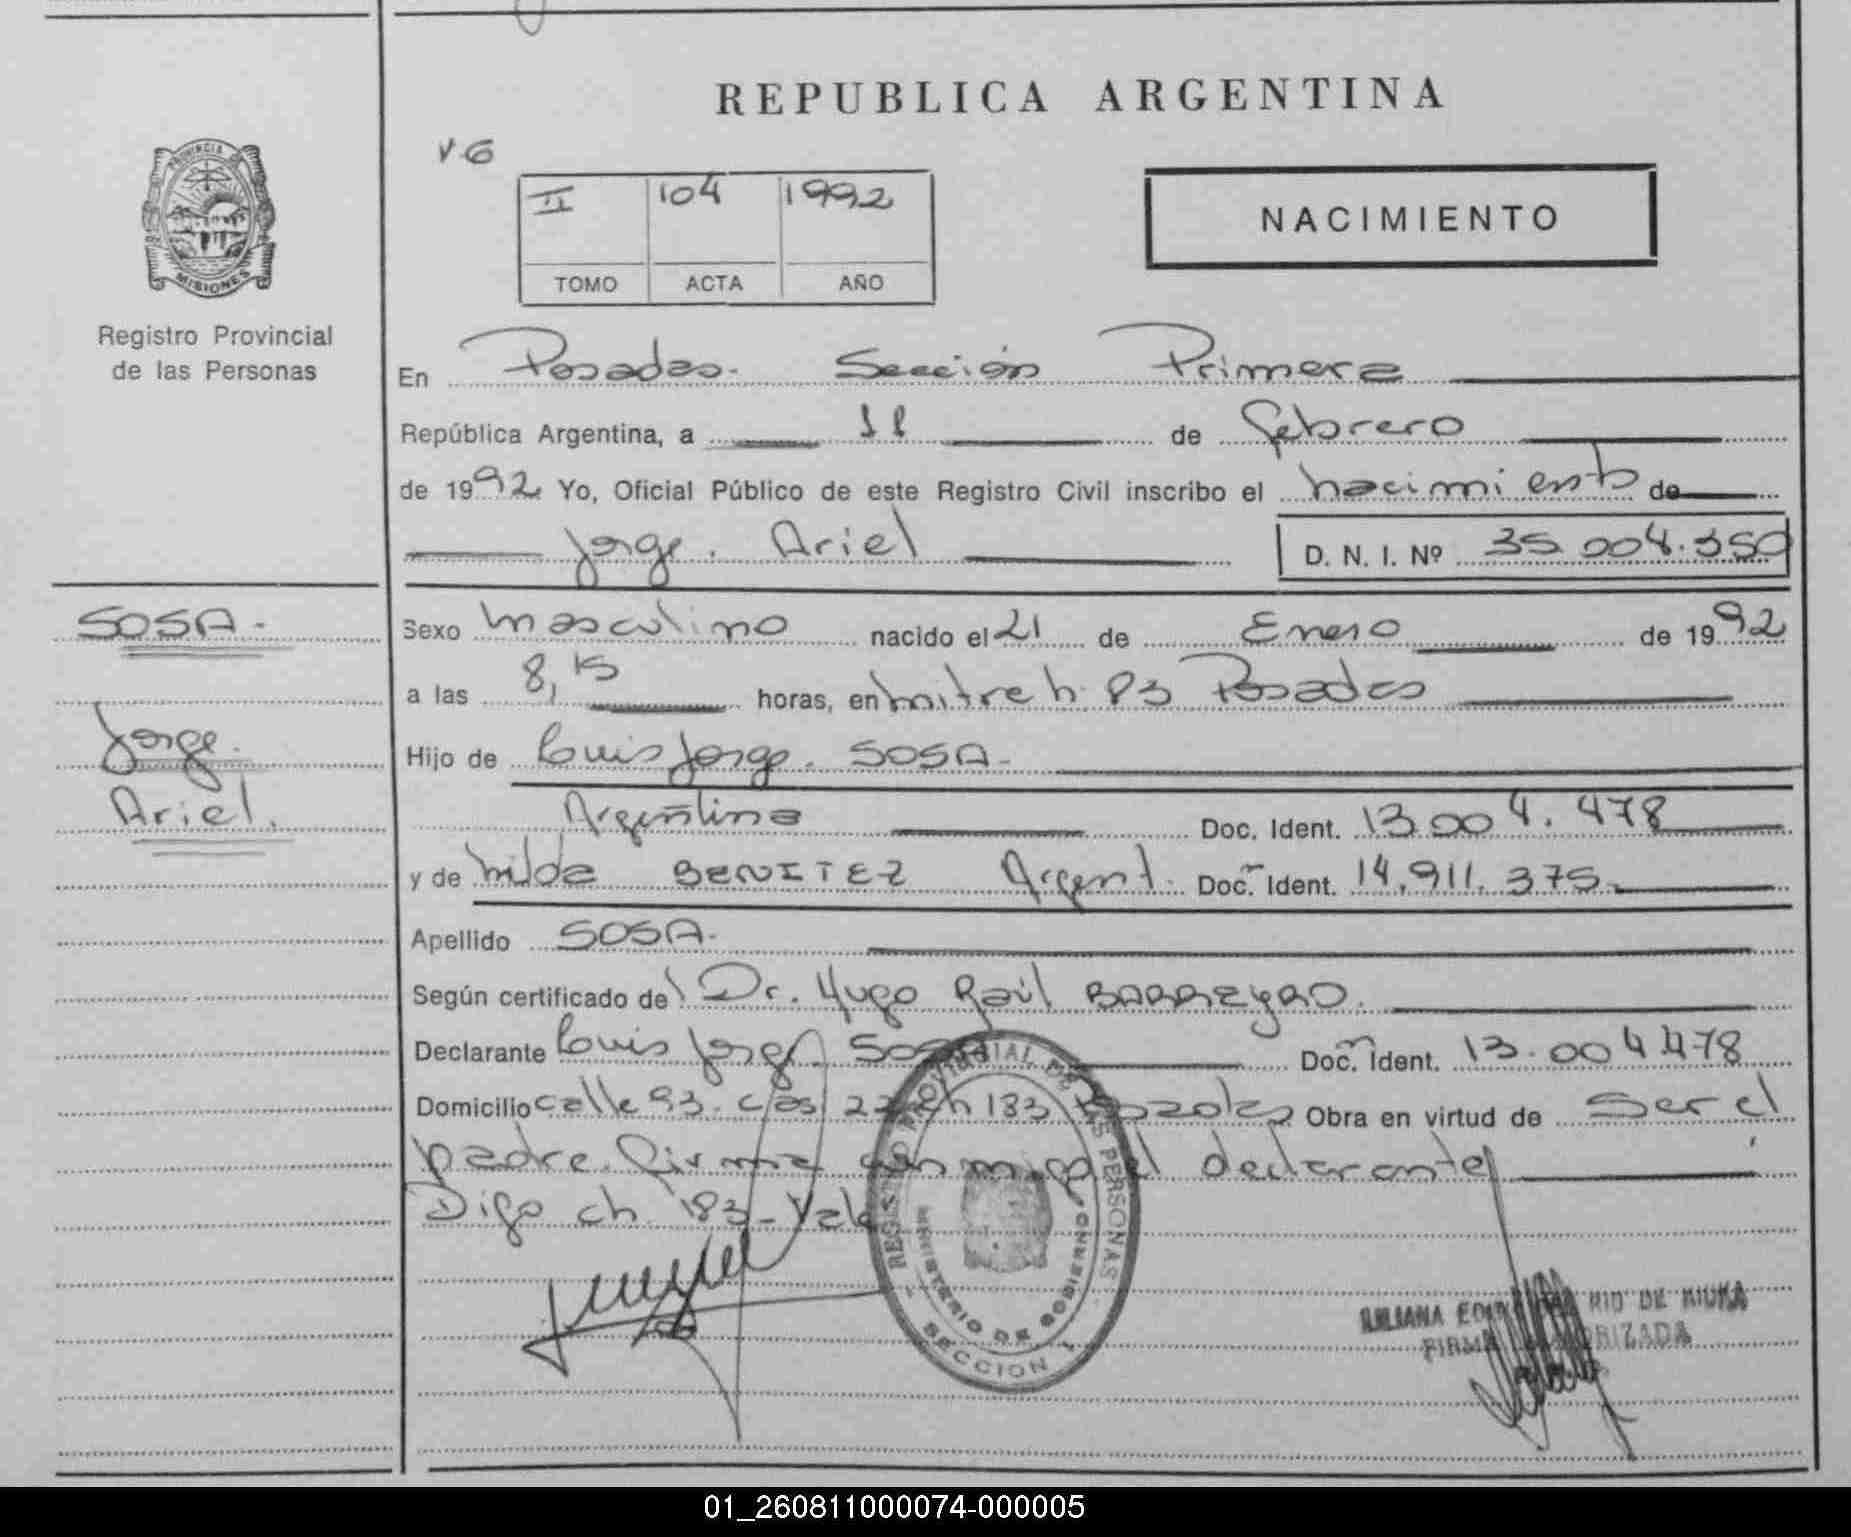 REPUBLICA ARGENTINA
PROVINCIA DE
MISIONES
Registro Provincial
de las Personas
V.G
II 104 1992
TOMO ACTA AÑO
NACIMIENTO
En Posadas. Sección Primera
República Argentina, a 11 de febrero
de 1992 Yo, Oficial Público de este Registro Civil inscribo el nacimiento de
Jorge. Ariel
D. N. I. Nº 35.004.350
SOSA.
Jorge.
Ariel.
Sexo masculino nacido el 21 de Enero de 1992
a las 8,15 horas, en mitre h. 83 Posadas
Hijo de Luis Jorge. SOSA.
Argentino Doc. Ident. 13.004.478
y de hilda BENITEZ Argent. Doc. Ident. 14.911.375.
Apellido SOSA.
Según certificado del Dr. Hugo Raúl BARREYRO.
Declarante Luis Jorge. Sosa Doc. Ident. 13.004.478
Domicilio calle 93. cas 22 ch 183 Posadas Obra en virtud de Ser el
padre. firma conmigo el declarante
Digo ch. 183 - Vale
REGISTRO PROVINCIAL DE LAS PERSONAS
MINISTERIO DE GOBIERNO
SECCION 1
RIO DE KIUKA
FIRMA AUTORIZADA
01_260811000074-000005